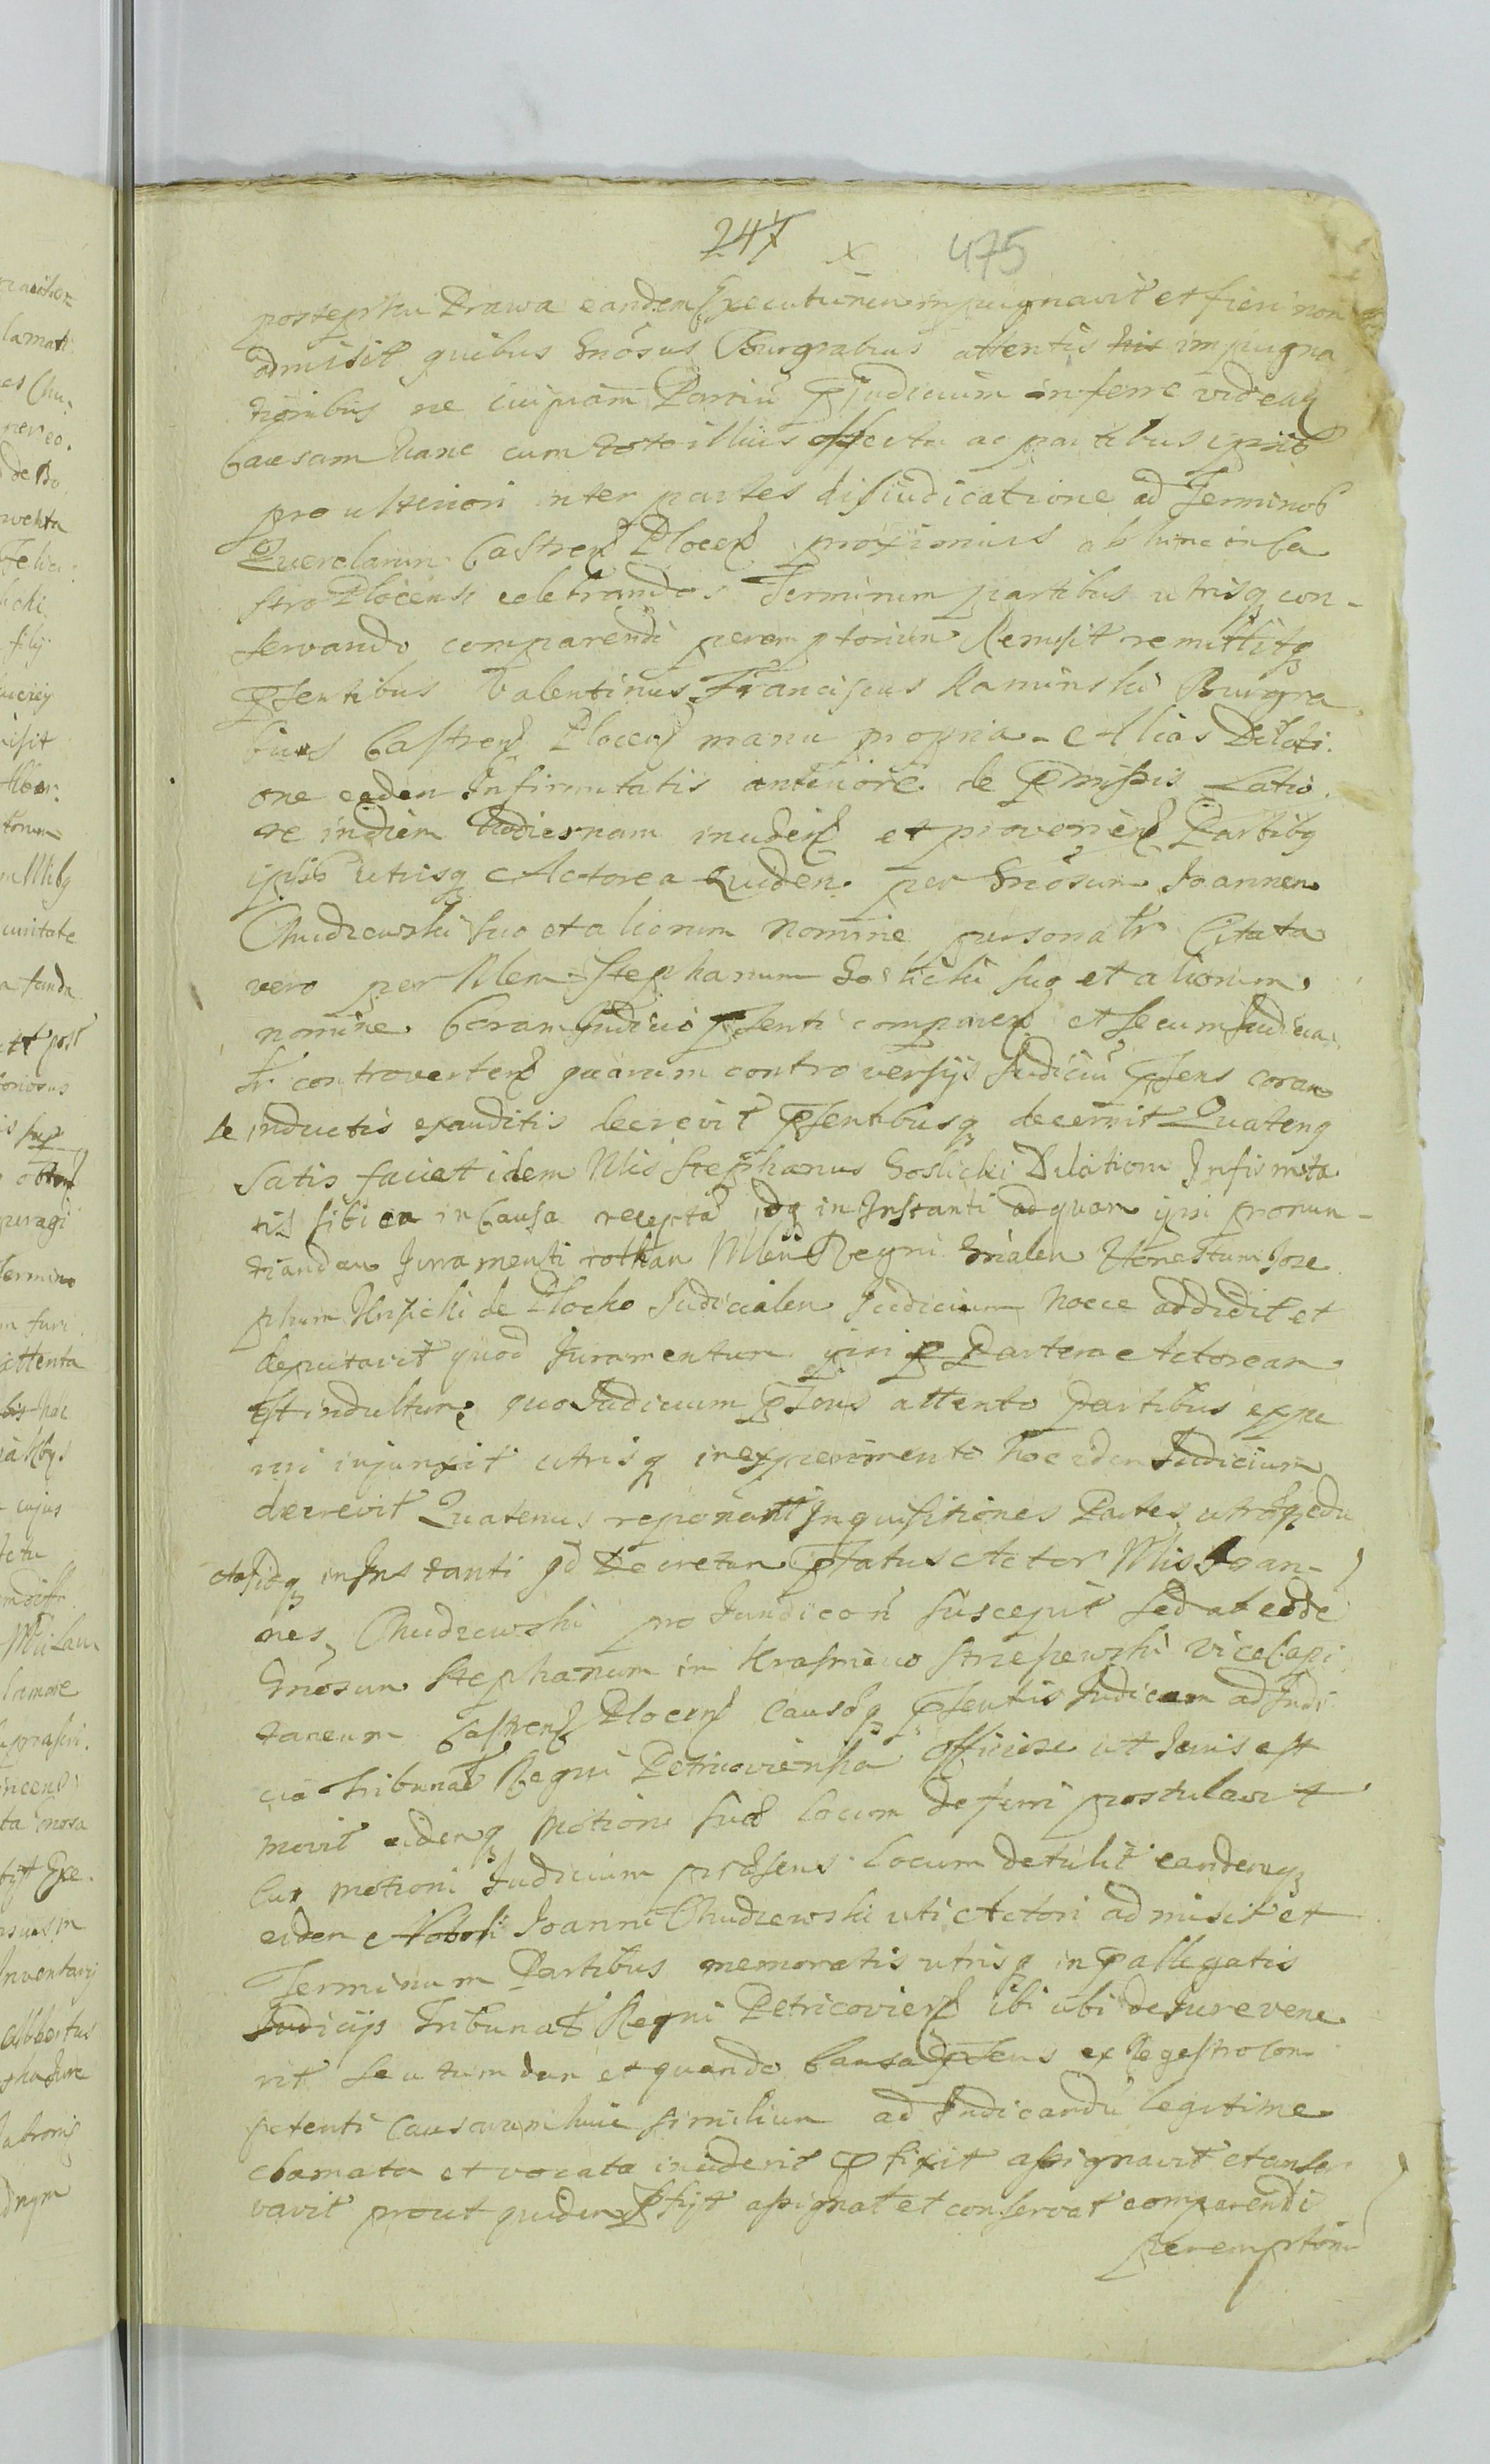 247 x 475
postępku Prawa eandem Executionem impugnavit et fieri non
admisit quibus Gnósus Burgrabius attentis his impugna
tionibus ne cuipiam Partiũ Pjudicium inferre videaꝗ
Causam hanc cum toto illius effectu ac partibus ipsis
pro ulteriori inter partes disiudicatione ad Terminos
Querelarum Castren Plocen proximius ab hinc in Ca
stro Plocensi celebrandos Terminum partibus utrisq con-
servando comparendi peremptorium Remisit remittitq
Psentibus Valentinus Franciscus Kaminski Burgra
bius Castren Plocen manu propria - Alias Dilati
one eadem Infirmitatis anteriore de Pmissis Latio
ne in diem hodiernam inciden et provenien Partibq
ipsis utrisq Actorea quidem per Gnósum Joannem
Chudzewski suo et aliorum nomine personalr Citata
vero per Mlem Stephanum Goslicki suo et aliorum
nomine Coram Judicio Psenti comparen et secum Judicia
lr controverten quarum controversijs Judiciũ Psens coram
se inductis exauditis decrevit Psentibusq decernit Quatenq
Satis faciet idem Mlis Stephanus Goslicki Dilationi Infirmita
tis sibi ea in Causa recepta idq in Instanti ad quam ipsi pronun-
tiandam Juramenti rotham Mlem Regni Gnalem Honestum Jose
phum de Plocko Judicialem Judicium hocce addidit et
deputavit quod Juramentum ipsi p Partem Actoream
est indultum quo Judicium Psens attento Partibus expe
riri injunxit utrisq in experimento hoc idem Judicium
decrevit Quatenus reponant Inquisitiones Partes utrasq edu
ctas idq in Instanti qd Decretum Pfatus Actor Mlis Joan-
nes Chudzewski pro Jundicon suscepit sed ab eodẽ
Gnosum Stephanum in Krasniewo Strzeszewski Vice Capi
taneum Castren Plocen Causaq Psentis Judicem ad Judi
cia Tribunal Regni Petricovien officiose ut Juris est
movit eidemq Motioni suæ locum deferri postulavit
Cui motioni Judicium præsens locum detulit eandemq
eidem Nobili Joanni Chudzewski uti Actori admisit et
Terminum Partibus memoratis utrisq in Pallegatis
Judicijs Tribunal Regni Petricovien ibi ubi de Jure vene
rit seu tum dum et quando Causa Psens ex Regestro com
petenti Causarum huic similium ad Judicandũ legitime
clamata et vocata inciderit Pfixit assignavit et conser
vavit prout quidem Pfijt assignat et conservat comparendi
peremptorium